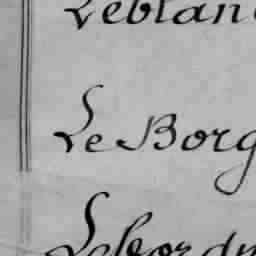 Leblan
Le Borg
Lebordn